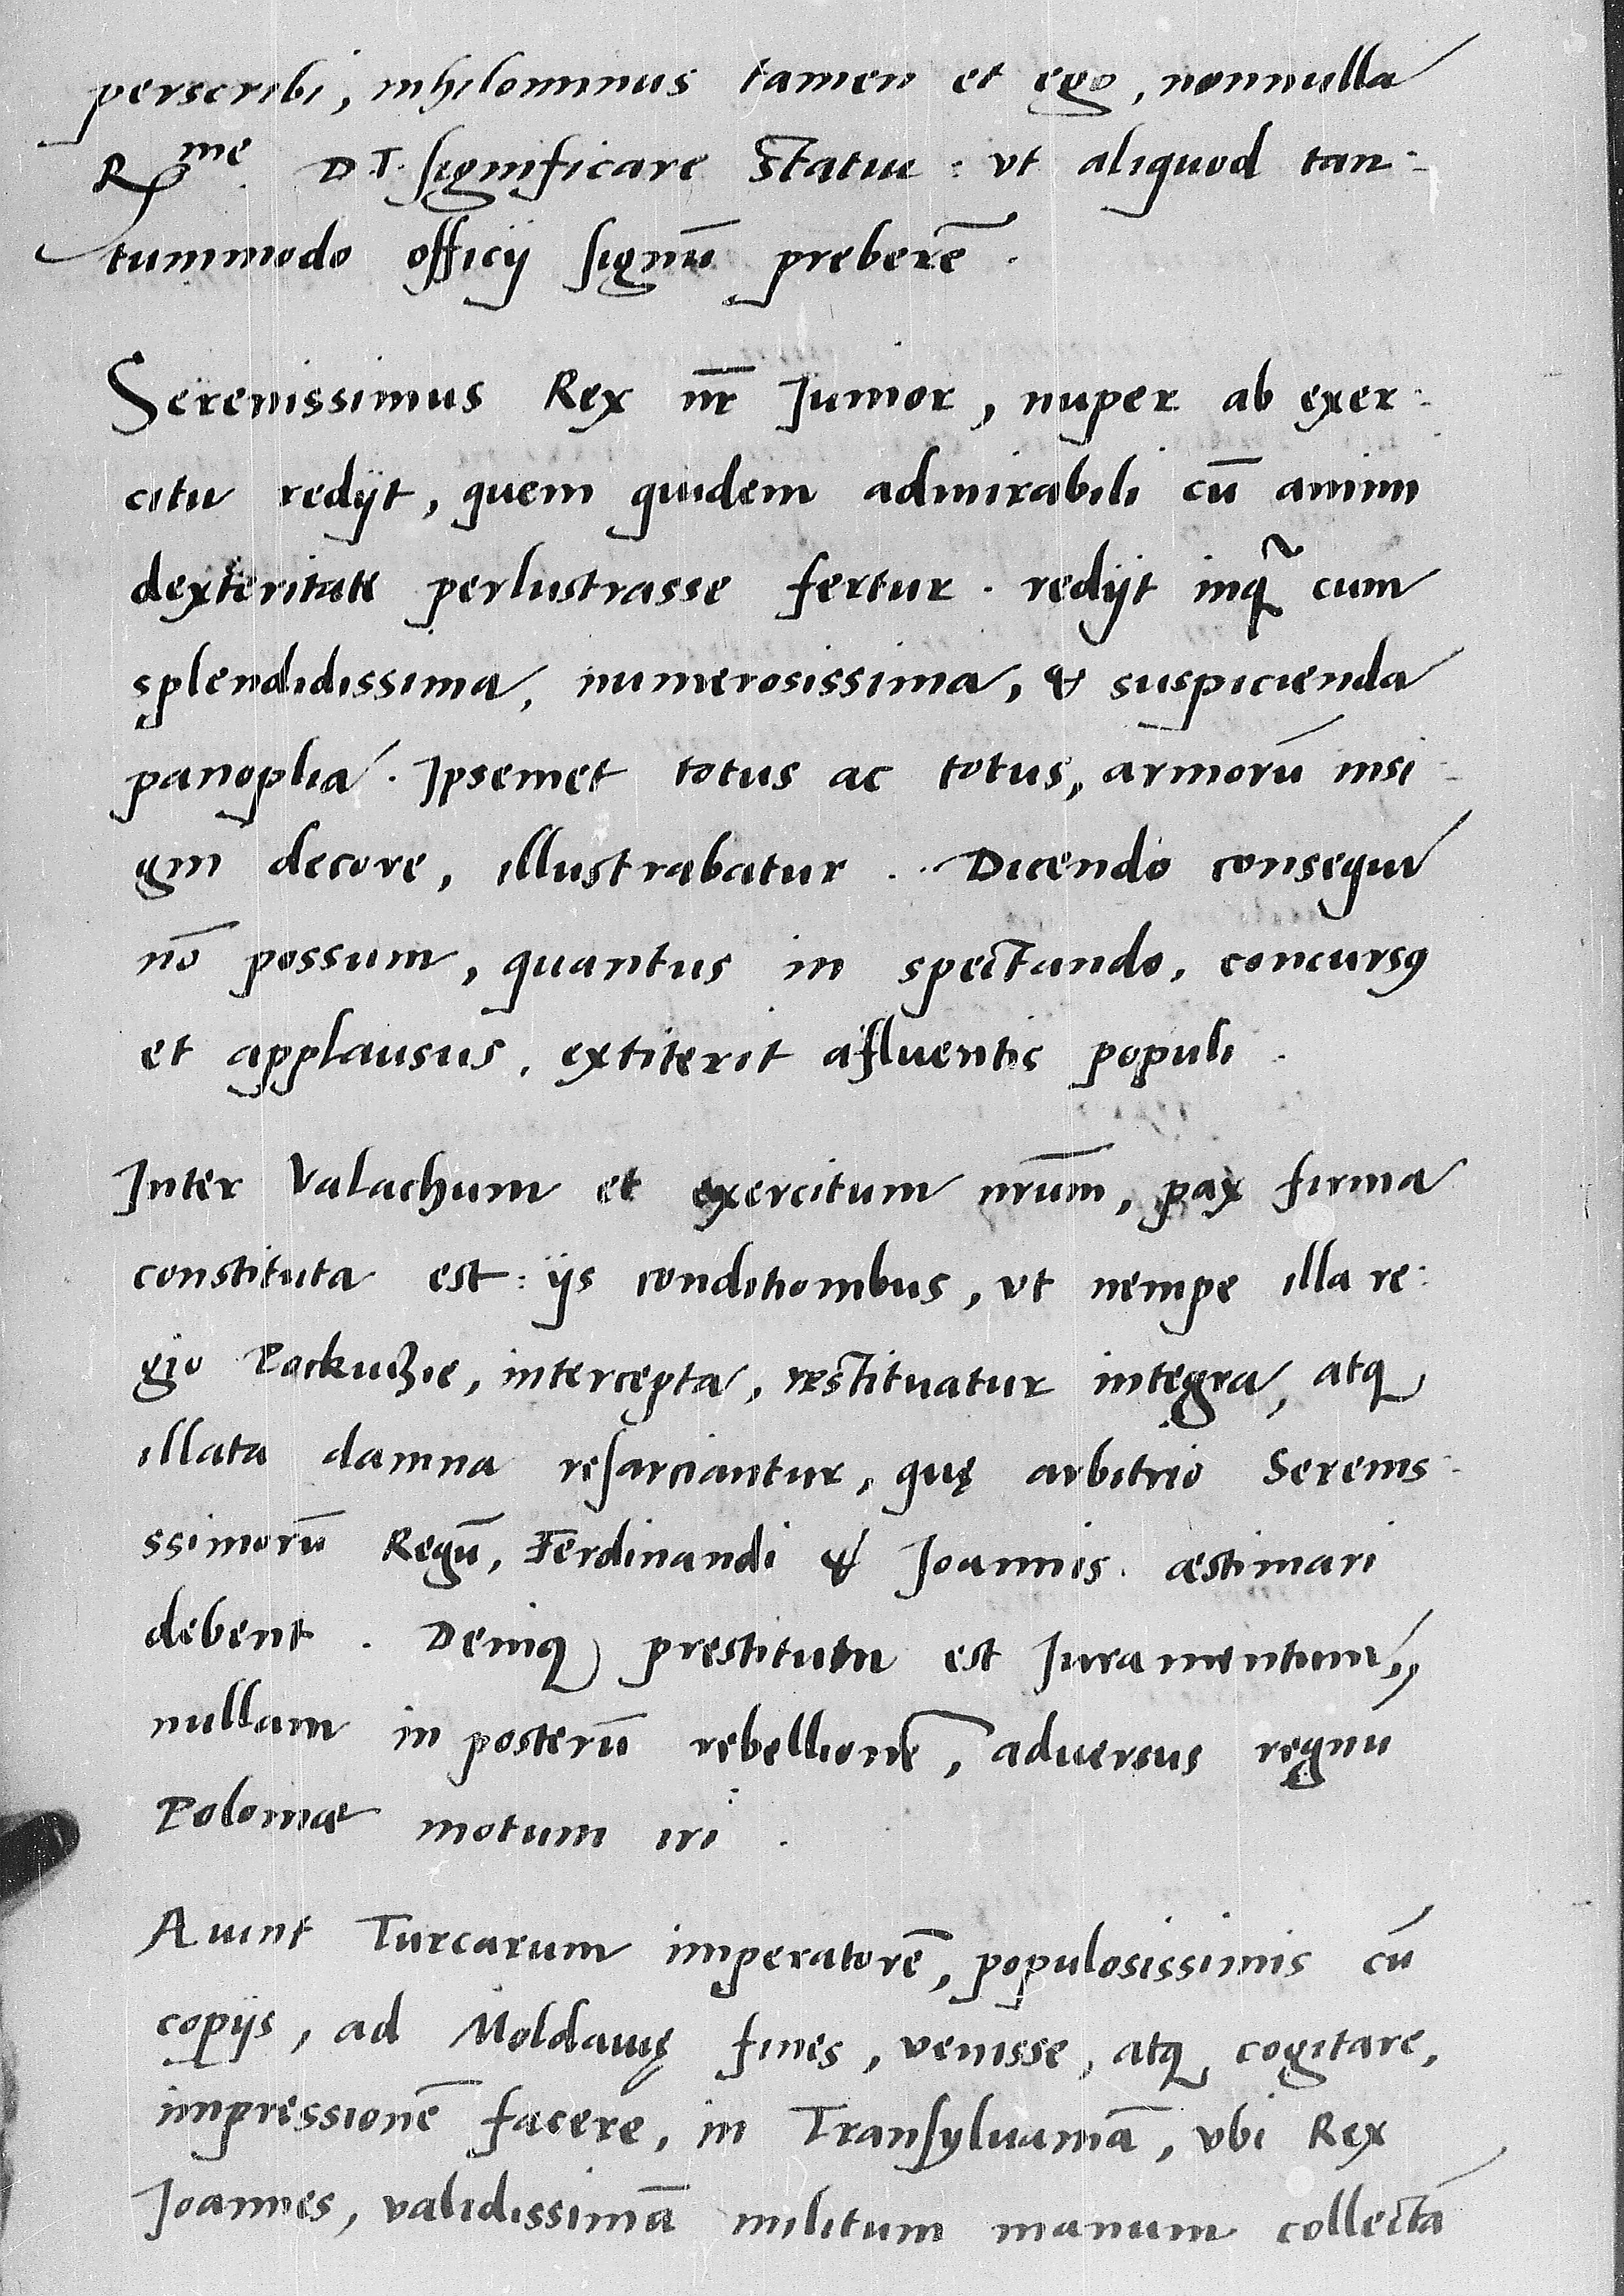 perscribi, nihilominus tamen et ego, nonnulla
R^me. D.T. significare statui: ut aliquod tan:
tummodo officij signū preberē.
Serenissimus Rex nr̄ Junior, nuper ab exer:
citu redijt, quem quidem admirabili cū animi
dexteritate perlustrasse fertur. redijt inq̃ cum
splendidissima, numerosissima, & suspicienda
panoplia. Ipsemet totus ac totus, armorū insi:
gni decore, illustrabatur. Dicendo consequi
nō possum, quantus in spectando, concursꝰ
et applausus, extiterit afluentis populi.
Inter Valachum et exercitum nrūm, pax firma
constituta est: ijs conditionibus, vt nempe illa re:
gio Pockuzie, intercepta, restituatur integra, atqꝫ
illata damna resarciantur, quę arbitrio Serenis:
ssimorū Regū, Ferdinandi & Joannis. æstimari
debent. Deniqꝫ prestitutū est Juramentum,
nullam in posterū rebellionē, aduersus regnū
Poloniæ motum iri.
Aiunt Turcarum imperatorē, populosissimis cū
copijs, ad Moldauię fines, venisse, atqꝫ cogitare,
impressionē facere, in Transyluaniā, vbi Rex
Joannes, validissimā militum manum collectā